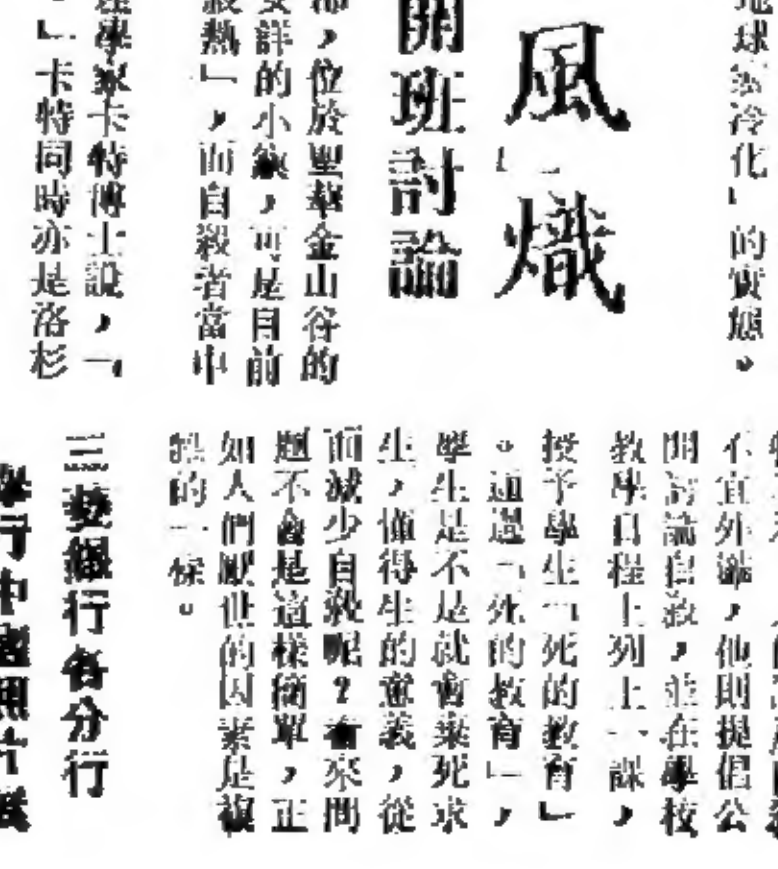 地球漸冷化」的實態。
風熾
開班討論
部,位於聖華金山谷的
安詳的小鎮,可是目前
殺熱」,而自殺者當中
理學家卡特博士說,「
」卡特同時亦是洛杉
不宜外漏,他則提倡公
開討論自殺,並在學校
教學日程上列上一課,
授予學生「死的教育」
。通過「死的教育」,
學生是不是就會棄死求
生,懂得生的意義,從
而減少自殺呢?看來問
題不會是這樣簡單,正
如人們厭世的因素是複
雜的一樣。
三藝銀行各分行
舉行中國照片